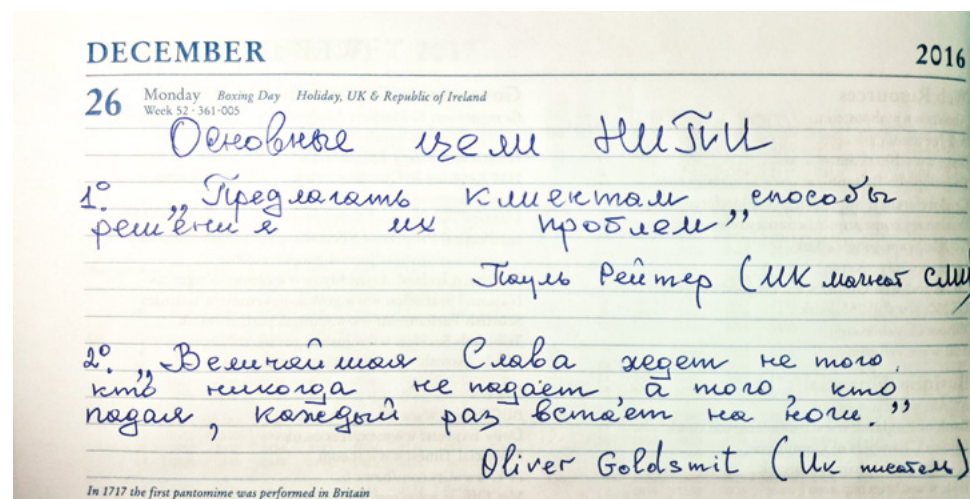 DECEMBER 2016
26 Monday Boxing Day Holiday, UK & Republic of Ireland
Week 52 · 361-005
Основные цели НИПИ
1º. „Предлагать клиентам способы
решения их проблем”
Пауль Рейтер (UK магнат СМИ)
2º. „Величайшая Слава ждет не того,
кто никогда не падает, а того, кто
падая, каждый раз встаёт на ноги.”
Oliver Goldsmit (Uk писатель)
In 1717 the first pantomime was performed in Britain